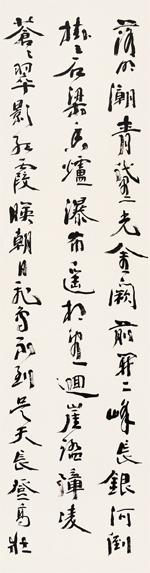 落明湖青黛光金闕前開二峰長銀河倒
挂三石梁香爐瀑布遥相望迴崖沓嶂凌
蒼々翠影紅霞暎朝日鳥飛不到吴天長登高壯